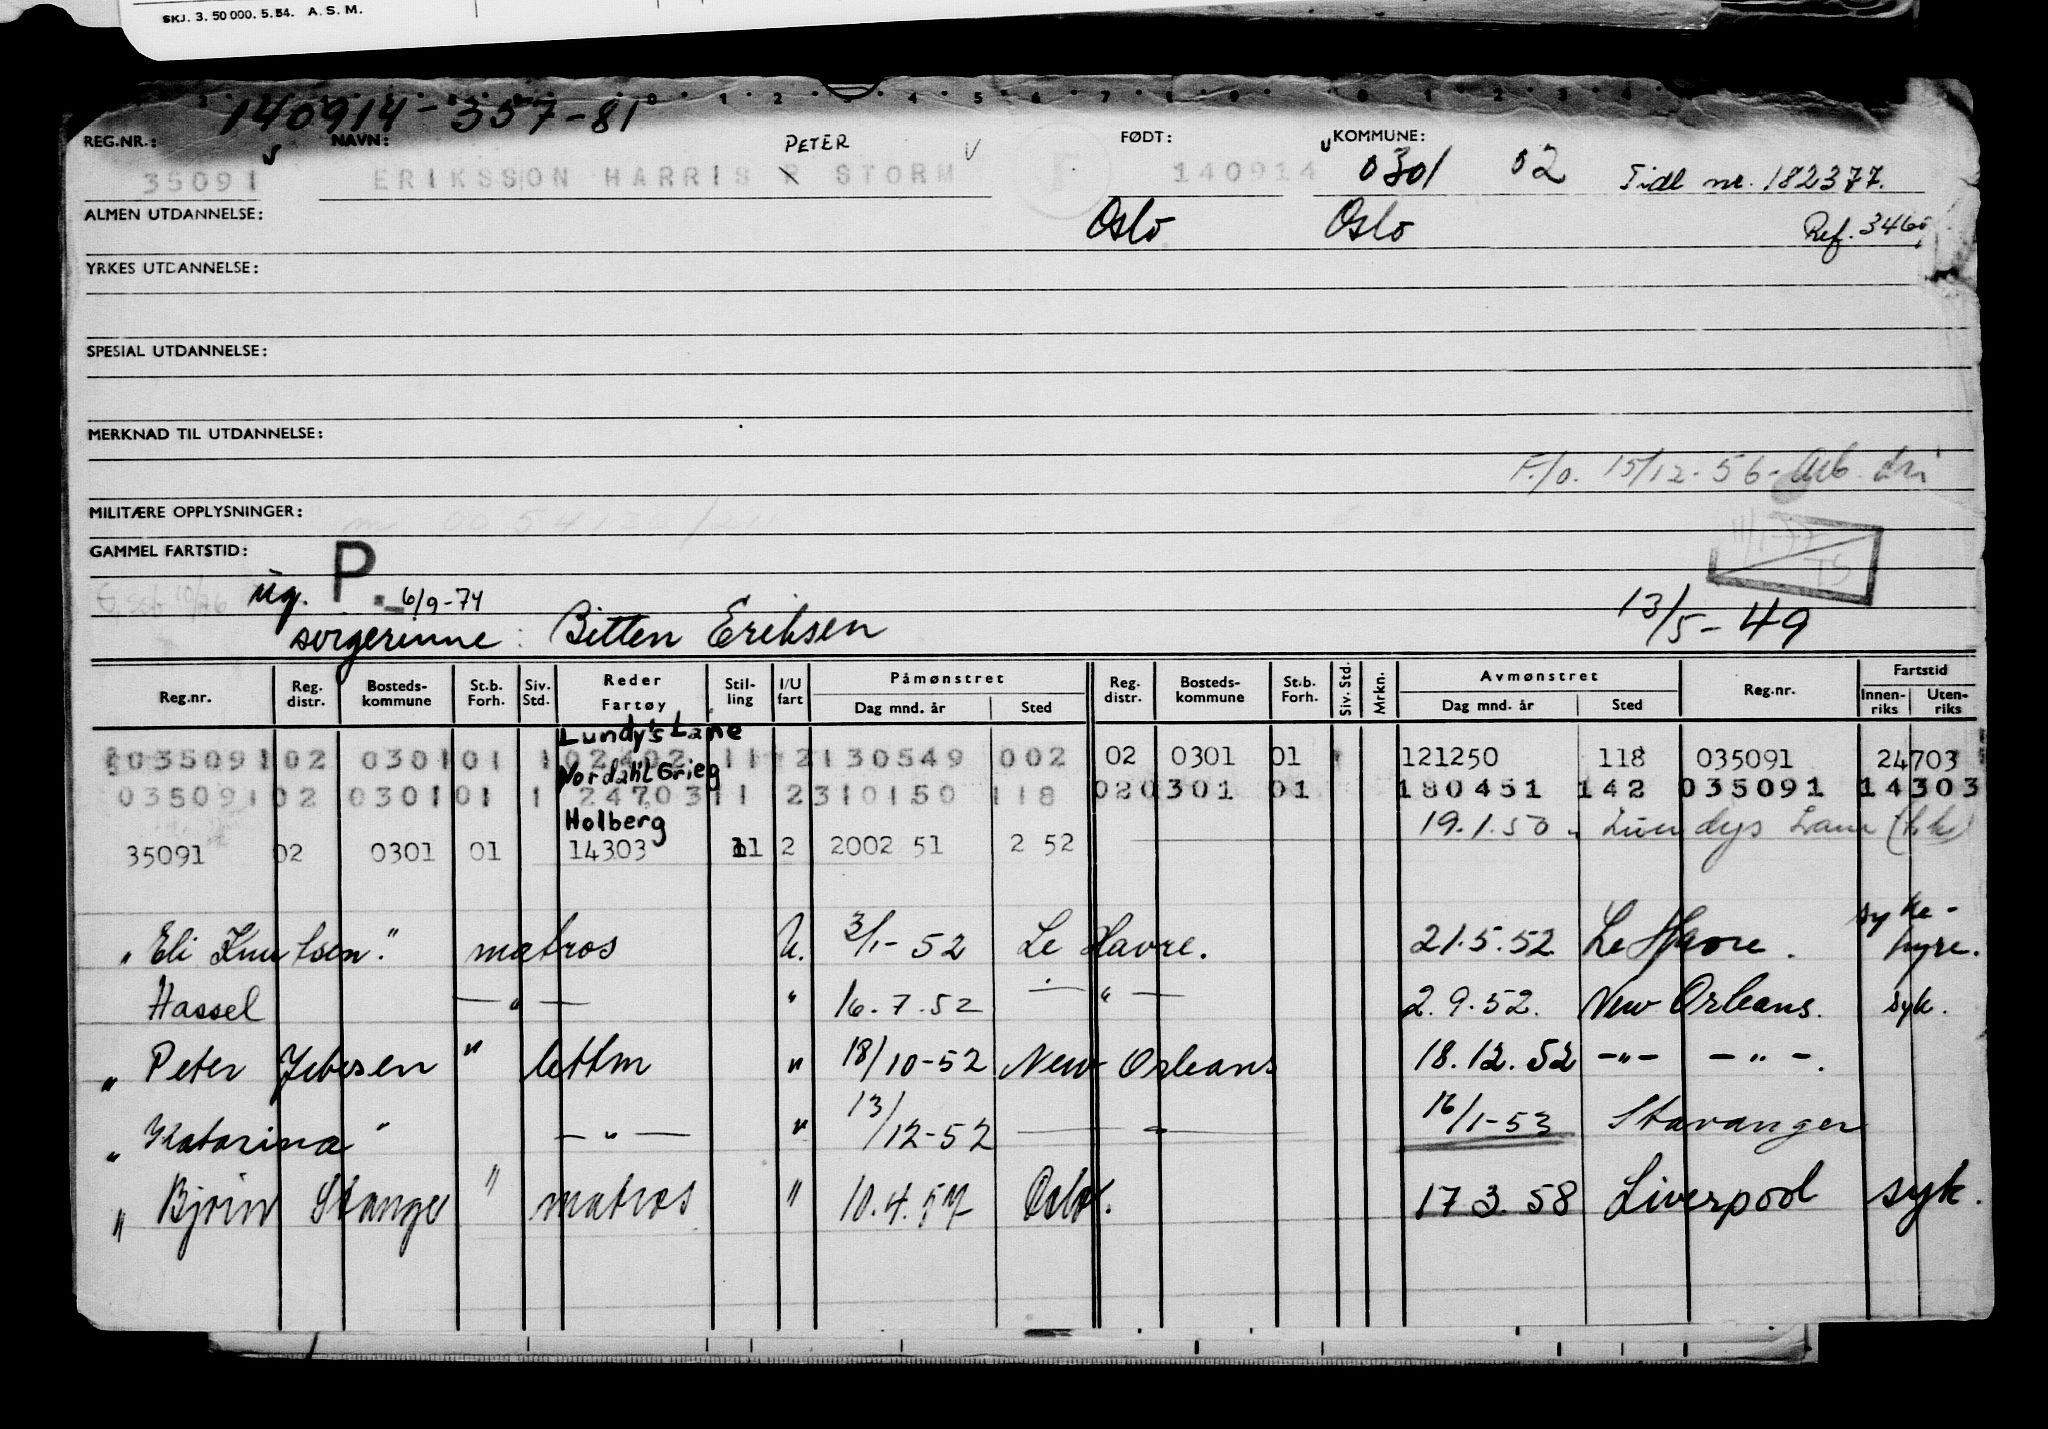 SKJ. 3. 50 000. 5. 54. A. S. M.
140914-357-81
REG.NR.: NAVN: PETER FØDT: KOMMUNE:
35091 ERIKSSON HARRIS P STORM 140914 0301 02 Tidl nr. 182377.
ALMEN UTDANNELSE: Oslo Oslo Ref. 3460
YRKES UTDANNELSE:
SPESIAL UTDANNELSE:
MERKNAD TIL UTDANNELSE:
F./o. 15/12-56- Arb. dir
MILITÆRE OPPLYSNINGER:
GAMMEL FARTSTID:
ug. P. 6/9-74
sørgerinne: Bitten Eriksen 13/5-49
Reg.nr. Reg. distr. Bosteds-kommune St.b. Forh. Siv. Std. Reder Fartøy Stil-ling I/U fart Påmønstret Dag mnd. år Sted Reg. distr. Bosteds-kommune St.b. Forh. Siv. Std. Mrkn. Avmønstret Dag mnd. år Sted Reg.nr. Fartstid Innen-riks Uten-riks
Lundy's Lane
035091 02 0301 01 1 02402 11 2 130549 002 02 0301 01 121250 118 035091 24703
Nordahl Grieg
035091 02 0301 01 1 24703 11 2 310150 118 02 0301 01 180451 142 035091 14303
Holberg 19.1.50 Lundys Lane
35091 02 0301 01 14303 11 2 2002 51 2 52
"Eli Knutsen" matros U. 3/1-52 Le Havre. 21.5.52 Le Havre. syke-hyre.
Hassel —"— " 16.7.52 —"— 2.9.52. New Orleans. syk.
"Peter Jebsen" lettm " 18/10-52 New Orleans 18.12.52 -"- -"-.
"Katarina" —"— " 13/12-52 —"— 16/1-53 Stavanger
"Bjørn Stange" matros " 10.4.57 Oslo. 17.3.58 Liverpool syk.